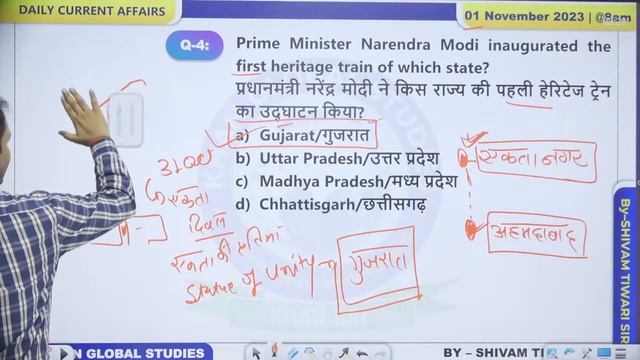 DAILY CURRENT AFFAIRS
01 November 2023 | @8am
Q-4:
Prime Minister Narendra Modi inaugurated the
first heritage train of which state?
प्रधानमंत्री नरेंद्र मोदी ने किस राज्य की पहली हेरिटेज ट्रेन
का उद्घाटन किया?
a) Gujarat/गुजरात
b) Uttar Pradesh/उत्तर प्रदेश
c) Madhya Pradesh/मध्य प्रदेश
d) Chhattisgarh/छत्तीसगढ़
31 oct
एकता
दिवस
एकता की प्रतिमा
Statue of Unity
गुजरात
एकता नगर
अहमदाबाद
By-SHIVAM TIWARI SIR
N GLOBAL STUDIES
BY - SHIVAM TIW